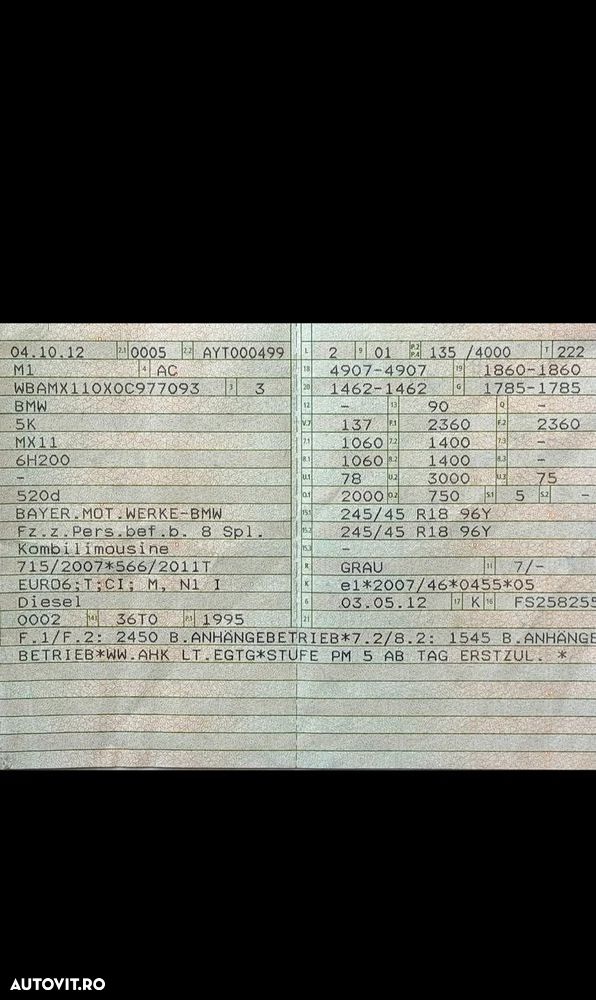 04.10.12 2.1 0005 2.2 AYT000499
M1 4 AC
WBAMX110X0C977093 3 3
BMW
5K
MX11
6H200
-
520d
BAYER.MOT.WERKE-BMW
Fz.z.Pers.bef.b. 8 Spl.
Kombilimousine
715/2007*566/2011T
EURO6;T;CI; M, N1 I
Diesel
0002 14.1 36T0 P.1 1995
L 2 9 01 P.2 P.4 135 /4000 T 222
18 4907-4907 19 1860-1860
20 1462-1462 G 1785-1785
12 - 13 90 Q -
V.7 137 F.1 2360 F.2 2360
7.1 1060 7.2 1400 7.3 -
8.1 1060 8.2 1400 8.3 -
U.1 78 U.2 3000 U.3 75
O.1 2000 O.2 750 S.1 5 S.2 -
15.1 245/45 R18 96Y
15.2 245/45 R18 96Y
15.3 -
R GRAU 11 7/-
K e1*2007/46*0455*05
6 03.05.12 17 K 16 FS258255
21
F.1/F.2: 2450 B.ANHÄNGEBETRIEB*7.2/8.2: 1545 B.ANHÄNGE
BETRIEB*WW.AHK LT.EGTG*STUFE PM 5 AB TAG ERSTZUL. *
AUTOVIT.RO